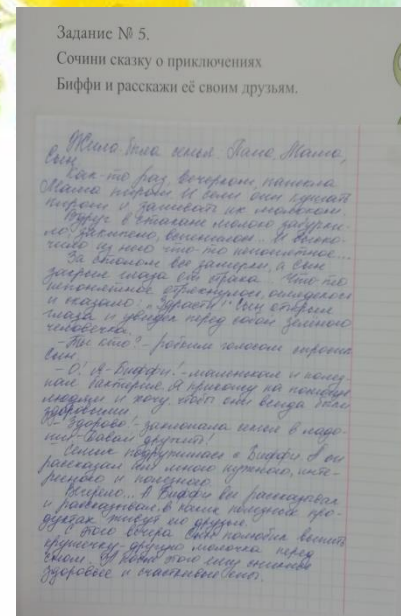 Задание № 5.
Сочини сказку о приключениях
Биффи и расскажи её своим друзьям.
Жила была семья. Папа, Мама,
Сын.
Как-то раз, вечерком, напекла
Мама пирогов. И сели они кушать
пироги и запивать их молоком.
Вдруг в стакане молоко забурли-
ло, закипело, вспенилось... И выско-
чило из него что-то непонятное...
За столом все замерли, а Сын
закрыл глаза от страха. Что-то
непонятное отряхнулось, огляделось
и сказало: "Здрасте!" Сын открыл
глаза и увидел перед собой
человечка.
- Ты кто? - робким голосом спросил
Сын.
- О! Я - Биффи! - маленькая и
бактерия. Я прихожу на помощь
людям и хочу, чтобы они всегда были
здоровыми.
- Здорово! - захлопала семья в ладо-
ши - Давай дружить!
Семья подружилась с Биффи. А он
рассказал им много нужного, инте-
ресного и полезного.
Вечерело... А Биффи все рассказывал
и рассказывал в каких полезных про-
дуктах живут его друзья.
С этого вечера Сын полюбил выпить
кружечку-другую молочка перед
сном. А после этого ему снились
здоровые и счастливые сны.